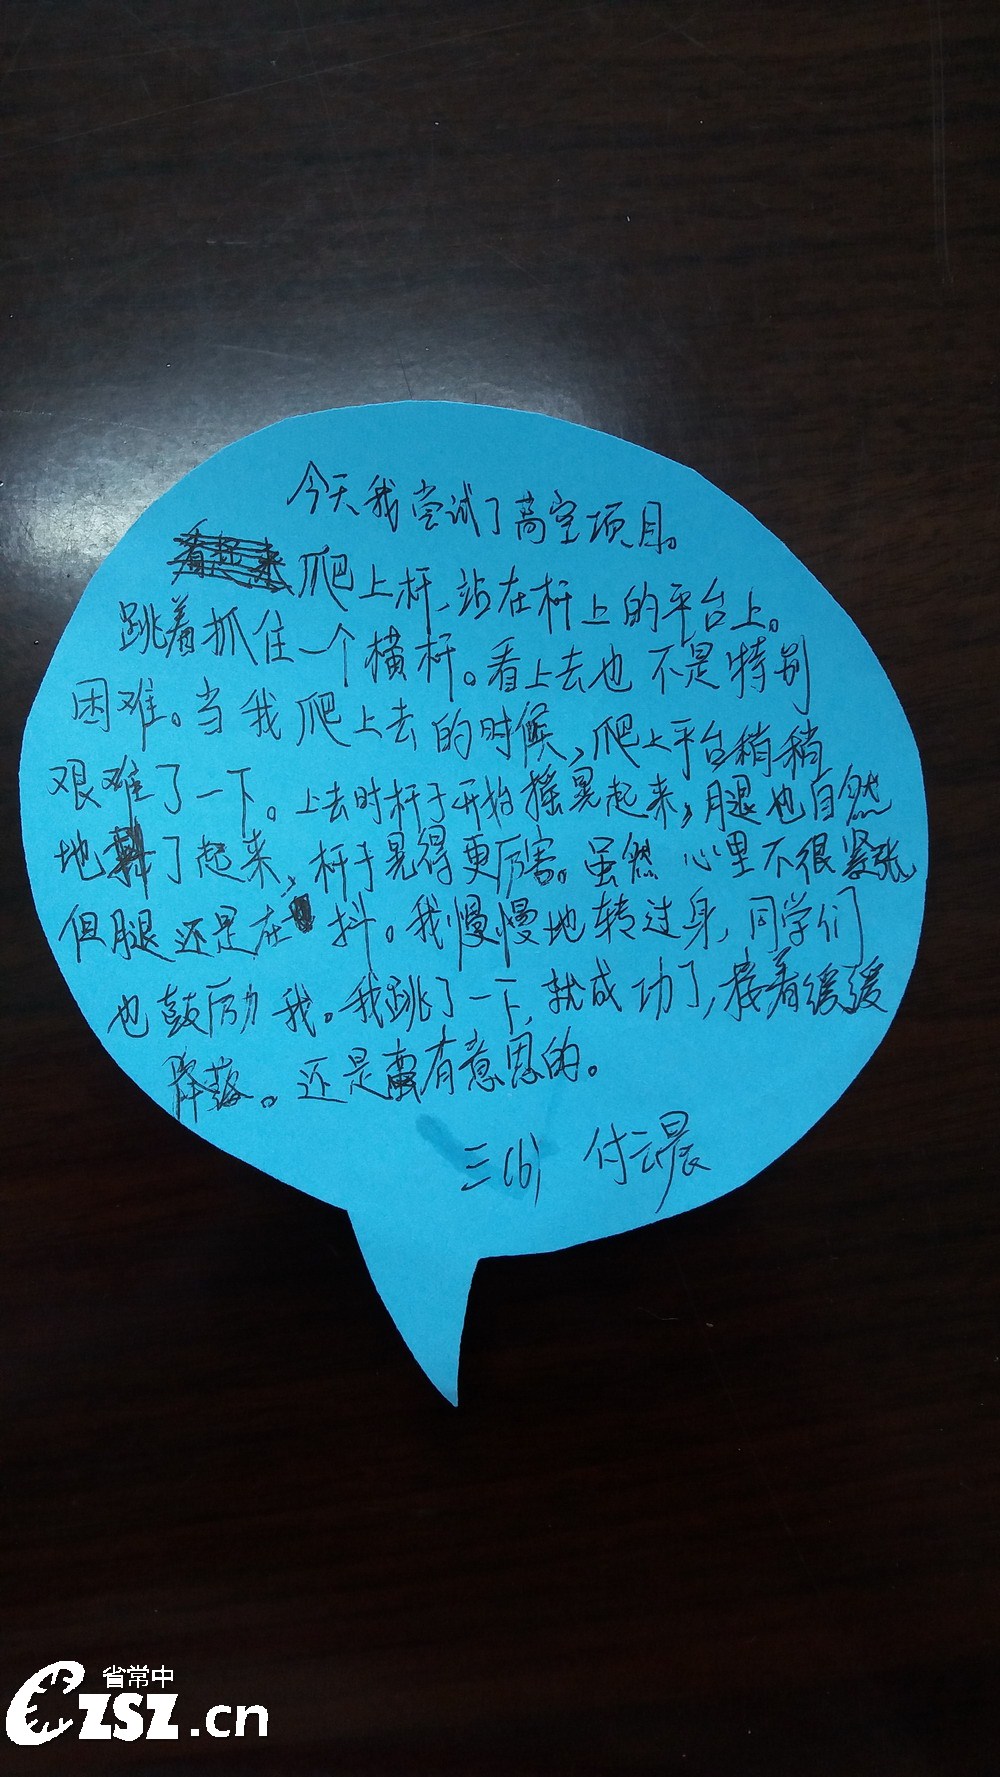 今天我尝试了高空项目。
爬上杆,站在杆上的平台上。
跳着抓住一个横杆。看上去也不是特别
困难。当我爬上去的时候,爬上平台稍稍
艰难了一下。上去时杆子开始摇晃起来,腿也自然
地抖了起来,杆子晃得更厉害。虽然心里不很紧张
但腿还是在抖。我慢慢地转过身,同学们
也鼓励我。我跳了一下,就成功了,接着缓缓
降落。还是蛮有意思的。
三(6) 付云晨
省常中
CZSZ.cn